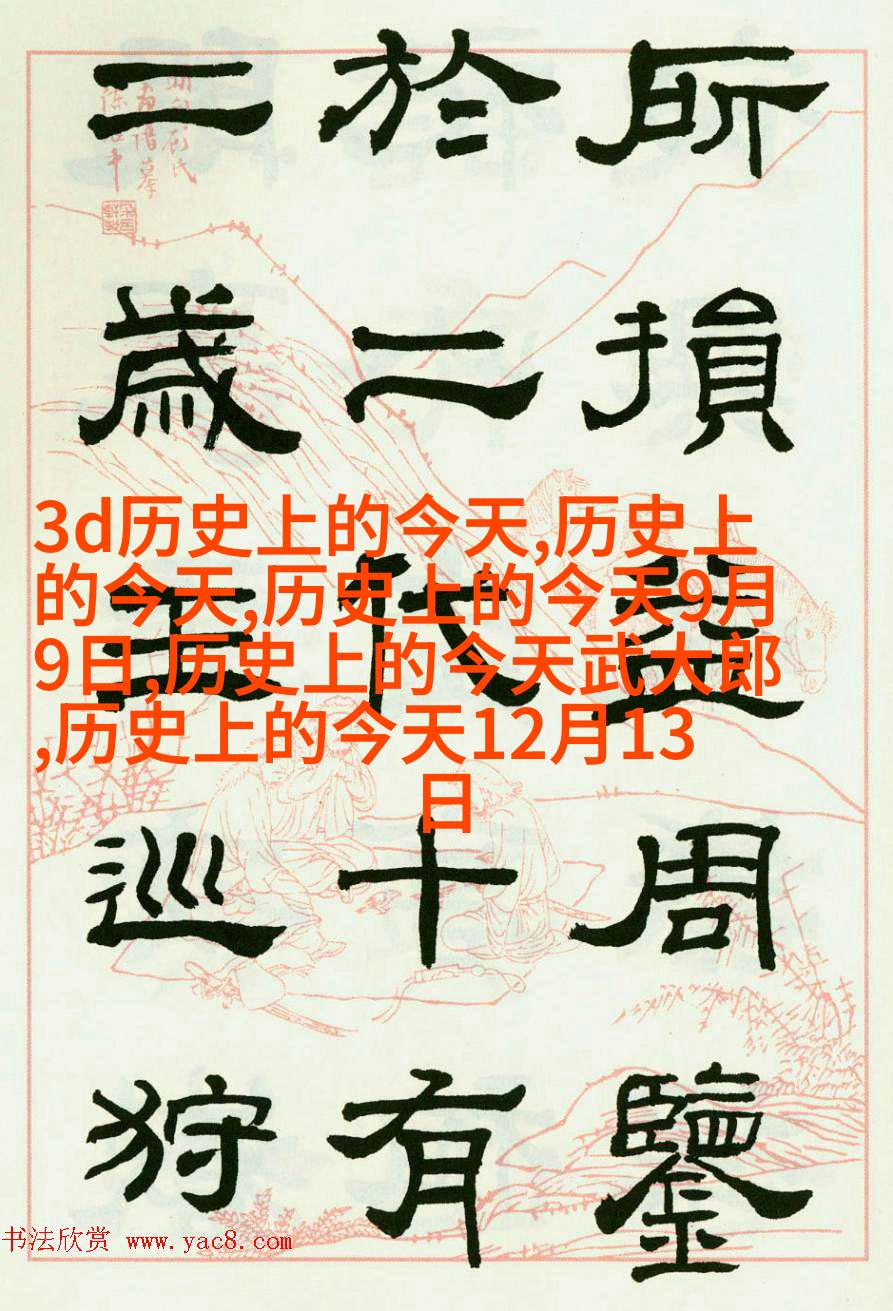 所損益周鑒
於二代十有
二歲王巡狩
3d历史上的今天,历史上
的今天,历史上的今天9月
9日,历史上的今天武大郎
,历史上的今天12月13
日
书法欣赏 www.yac8.com